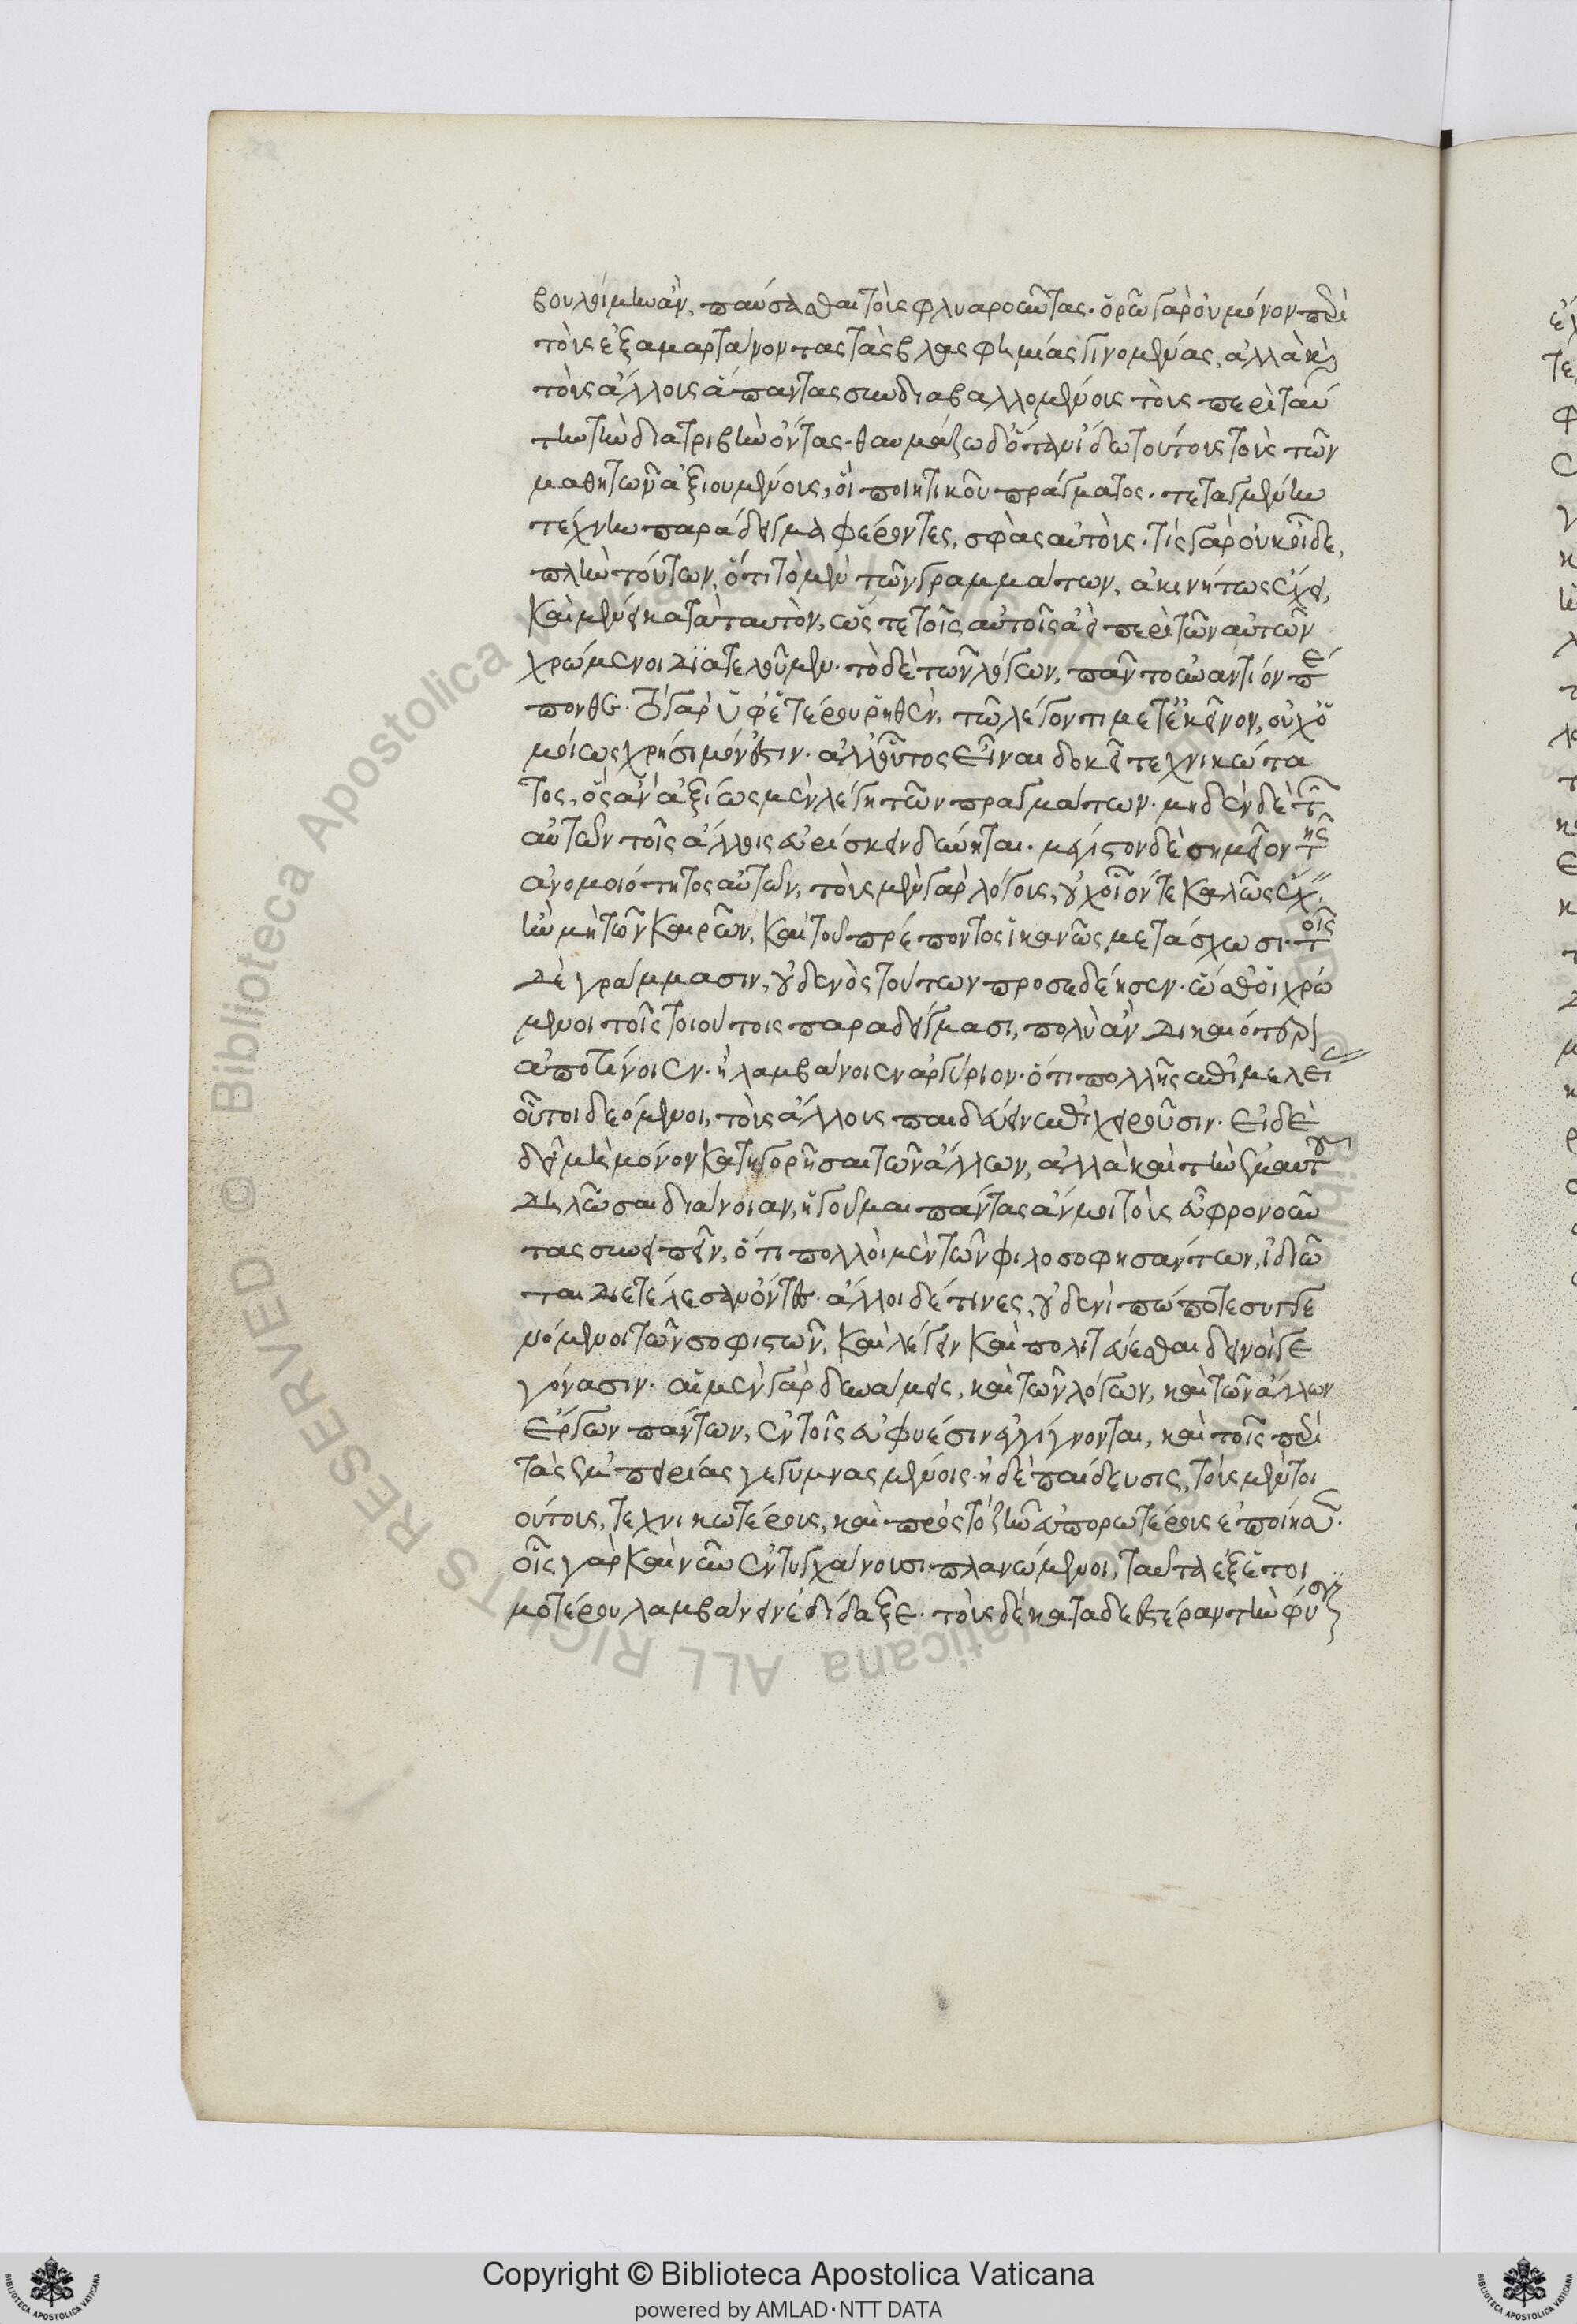 βουλοίμην ἂν, παύσασθαι τοὺς φλυαροῦντας. ὁρῶ γὰρ οὐ μόνον περὶ
τοὺς ἐξαμαρτάνοντας τὰς βλασφημίας γινομένας, ἀλλὰ καὶ
τοὺς ἄλλους ἅπαντας συνδιαβαλλομένους τοὺς περὶ ταύ
την τὴν διατριβὴν ὄντας. θαυμάζω δ' ὅταν ἴδω τούτους τοὺς τῶν
μαθητῶν ἀξιουμένους, οἳ ποιητικοῦ πράγματος. τεταγμένην
τέχνην παράδειγμα φέροντες, σφᾶς αὐτούς. τίς γὰρ οὐκ οἶδε,
πλὴν τούτων, ὅτι τὸ μὲν τῶν γραμμάτων, ἀκινήτως ἔχει,
καὶ μένει κατὰ ταυτὸν, ὥστε τοῖς αὐτοῖς ἀεὶ περὶ τῶν αὐτῶν
χρώμενοι διατελοῦμεν. τὸ δὲ τῶν λόγων, πᾶν τοὐναντίον πέ
πονθε. τὸ γὰρ ὑφ' ἑτέρου ῥηθὲν, τῷ λέγοντι μετ' ἐκεῖνον, οὐχ ὁ
μοίως χρήσιμόν ἐστιν. ἀλλ' οὗτος εἶναι δοκεῖ τεχνικώτα
τος, ὃς ἂν ἀξίως μὲν λέγῃ τῶν πραγμάτων. μηδὲν δὲ τῶν
αὐτῶν τοῖς ἄλλοις εὑρίσκειν δύνηται. μέγιστον δὲ σημεῖον τῆς
ἀνομοιότητος αὐτῶν, τοὺς μὲν γὰρ λόγους, οὐχ οἷόν τε καλῶς ἔχειν
ἢν μὴ τῶν καιρῶν, καὶ τοῦ πρέποντος ἱκανῶς μετάσχωσι. τοῖς
δὲ γράμμασιν, οὐδενὸς τούτων προσεδέησεν. ὥσθ' οἱ χρώ
μενοι τοῖς τοιούτοις παραδείγμασι, πολὺ ἂν δικαιότερον
ἀποτίνοιεν. ἢ λαμβάνοιεν ἀργύριον. ὅτι πολλῆς ἐπιμελεί
οὗτοι δεόμενοι, τοὺς ἄλλους παιδεύειν ἐπιχειροῦσιν. εἰ δὲ
δεῖ μὴ μόνον κατηγορῆσαι τῶν ἄλλων, ἀλλὰ καὶ τὴν ἐμαυτοῦ
δηλῶσαι διάνοιαν, ἡγοῦμαι πάντας ἄν μοι τοὺς εὖ φρονοῦν
τας συνειπεῖν, ὅτι πολλοὶ μὲν τῶν φιλοσοφησάντων, ἰδιῶ
ται διετέλεσαν ὄντες. ἄλλοι δέ τινες, οὐδενὶ πώποτε συγγε
νόμενοι τῶν σοφιστῶν, καὶ λέγειν καὶ πολιτεύεσθαι δεινοὶ γε
γόνασιν. αἱ μὲν γὰρ δυνάμεις, καὶ τῶν λόγων, καὶ τῶν ἄλλων
ἔργων πάντων, ἐν τοῖς εὐφυέσιν ἐγγίγνονται, καὶ τοῖς περὶ
τὰς ἐμπειρίας γεγυμνασμένοις. ἡ δὲ παίδευσις, τοὺς μὲν τοι
ούτους, τεχνικωτέρους, καὶ πρὸς τὸ ζῆν εὐπορωτέρους ἐποίησεν.
οἷς γὰρ καὶ νῦν ἐντυγχάνουσι πλανώμενοι, ταῦτα ἐξ ἑτοι
μοτέρου λαμβάνειν ἐδίδαξε. τοὺς δὲ καταδεεστέραν τὴν φύσιν
Copyright © Biblioteca Apostolica Vaticana
powered by AMLAD·NTT DATA